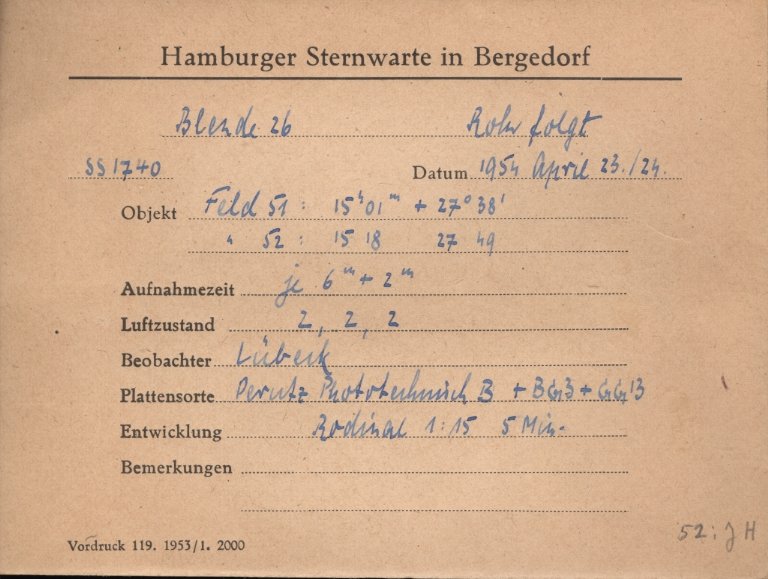 Hamburger Sternwarte in Bergedorf
Blende 26 Rohr folgt
SS 1740 Datum 1954 April 23./24.
Objekt Feld 51 : 15ʰ01ᵐ + 27° 38'
" 52 : 15 18 27 49
Aufnahmezeit je 6ᵐ + 2ᵐ
Luftzustand 2, 2, 2
Beobachter Lübeck
Plattensorte Perutz Phototechnisch B + BG3 + GG13
Entwicklung Rodinal 1:15 5 Min.
Bemerkungen
52: J H
Vordruck 119. 1953/1. 2000